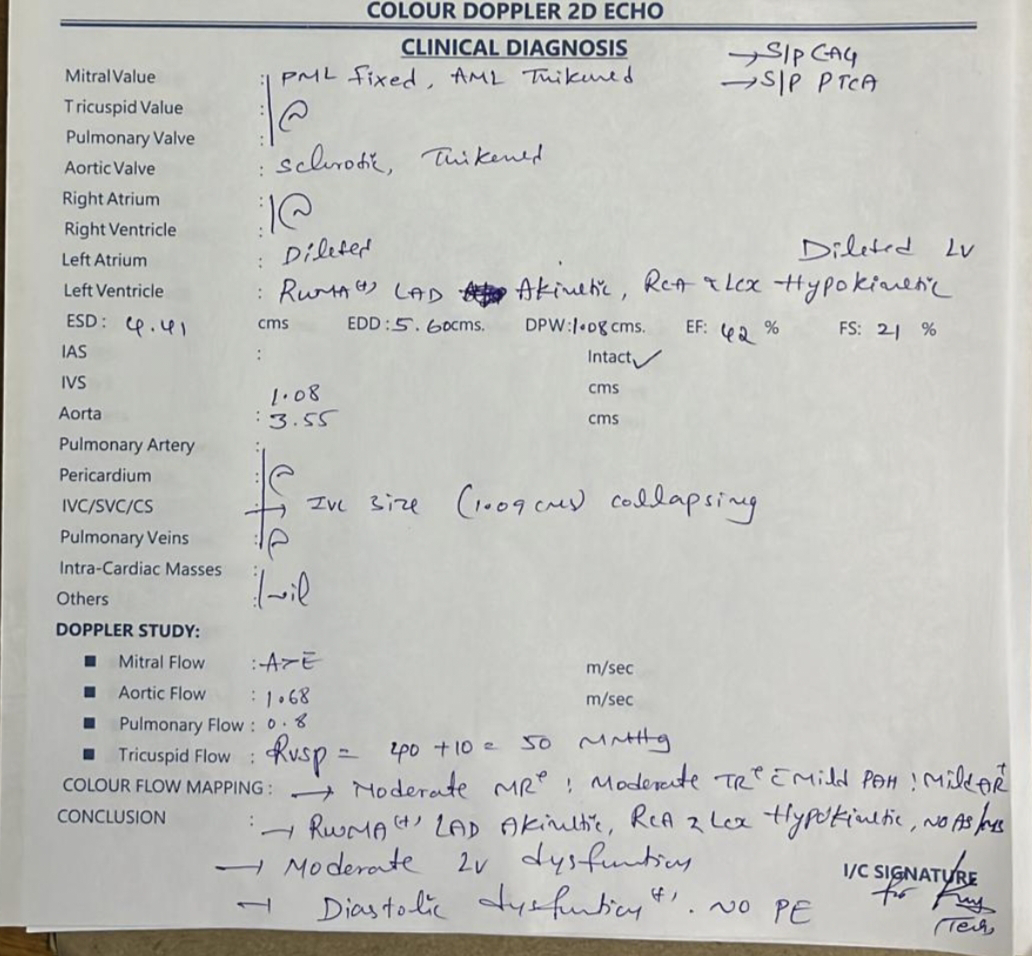 COLOUR DOPPLER 2D ECHO
CLINICAL DIAGNOSIS
→ S/P CAG
→ S/P PTCA
Mitral Value : PML fixed, AML Thikened
Tricuspid Value : N
Pulmonary Valve :
Aortic Valve : Sclerotic, Thikened
Right Atrium : N
Right Ventricle :
Left Atrium : Dileted
Dileted LV
Left Ventricle : RWMA (+) LAD Akinetic, RCA & LCX Hypokinetic
ESD: 4.41 cms EDD: 5.60 cms. DPW: 1.08 cms. EF: 42 % FS: 21 %
IAS : Intact ✓
IVS 1.08 cms
Aorta : 3.55 cms
Pulmonary Artery :
Pericardium :
IVC/SVC/CS → IVC size (1.09 cms) collapsing
Pulmonary Veins :
Intra-Cardiac Masses :
Others : Nil
DOPPLER STUDY:
■ Mitral Flow : A>E m/sec
■ Aortic Flow : 1.68 m/sec
■ Pulmonary Flow : 0.8
■ Tricuspid Flow : RVSP = 40 + 10 = 50 MMHg
COLOUR FLOW MAPPING : → Moderate MR ; Moderate TR c̄ Mild PAH ; Mild AR
CONCLUSION : → RWMA (+) LAD Akinetic, RCA & LCX Hypokinetic, NO AS/MS
→ Moderate LV dysfuntion
→ Diastolic dysfuntion (+). NO PE
I/C SIGNATURE
for
(Tech)